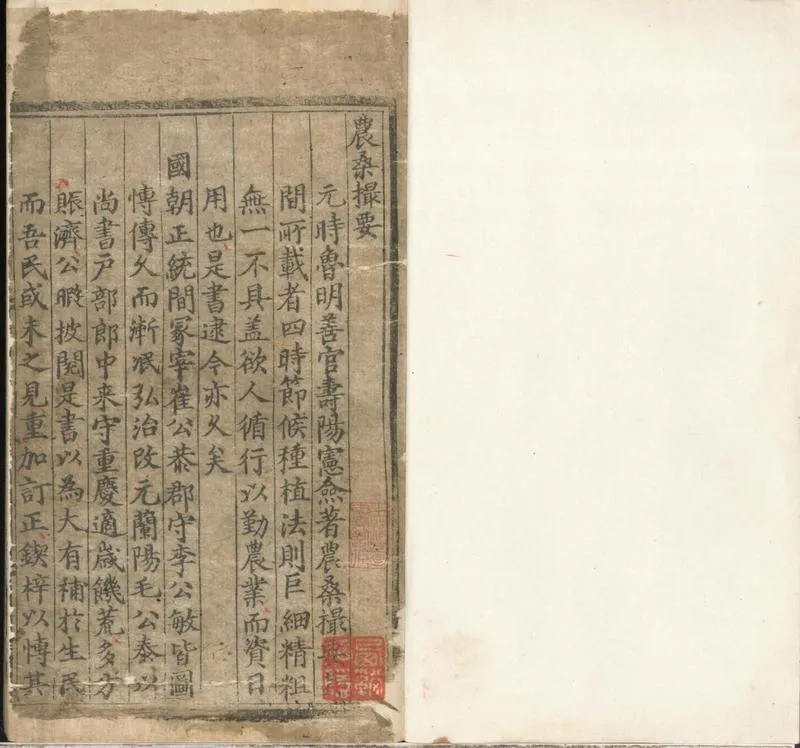 農桑撮要
元時魯明善官壽陽憲僉著農桑撮要
間所載者四時節候種植法則巨細精粗
無一不具盖欲人循行以勤農業而資日
用也是書逮今亦久矣
國朝正統間冢宰崔公恭郡守李公敏皆圖
慱傳久而漸泯弘治改元蘭陽毛公泰以
尚書戸部郎中来守重慶適歳饑荒多方
賑濟公暇披閱是書以為大有補於生民
而吾民或未之見重加訂正鍥梓以慱其